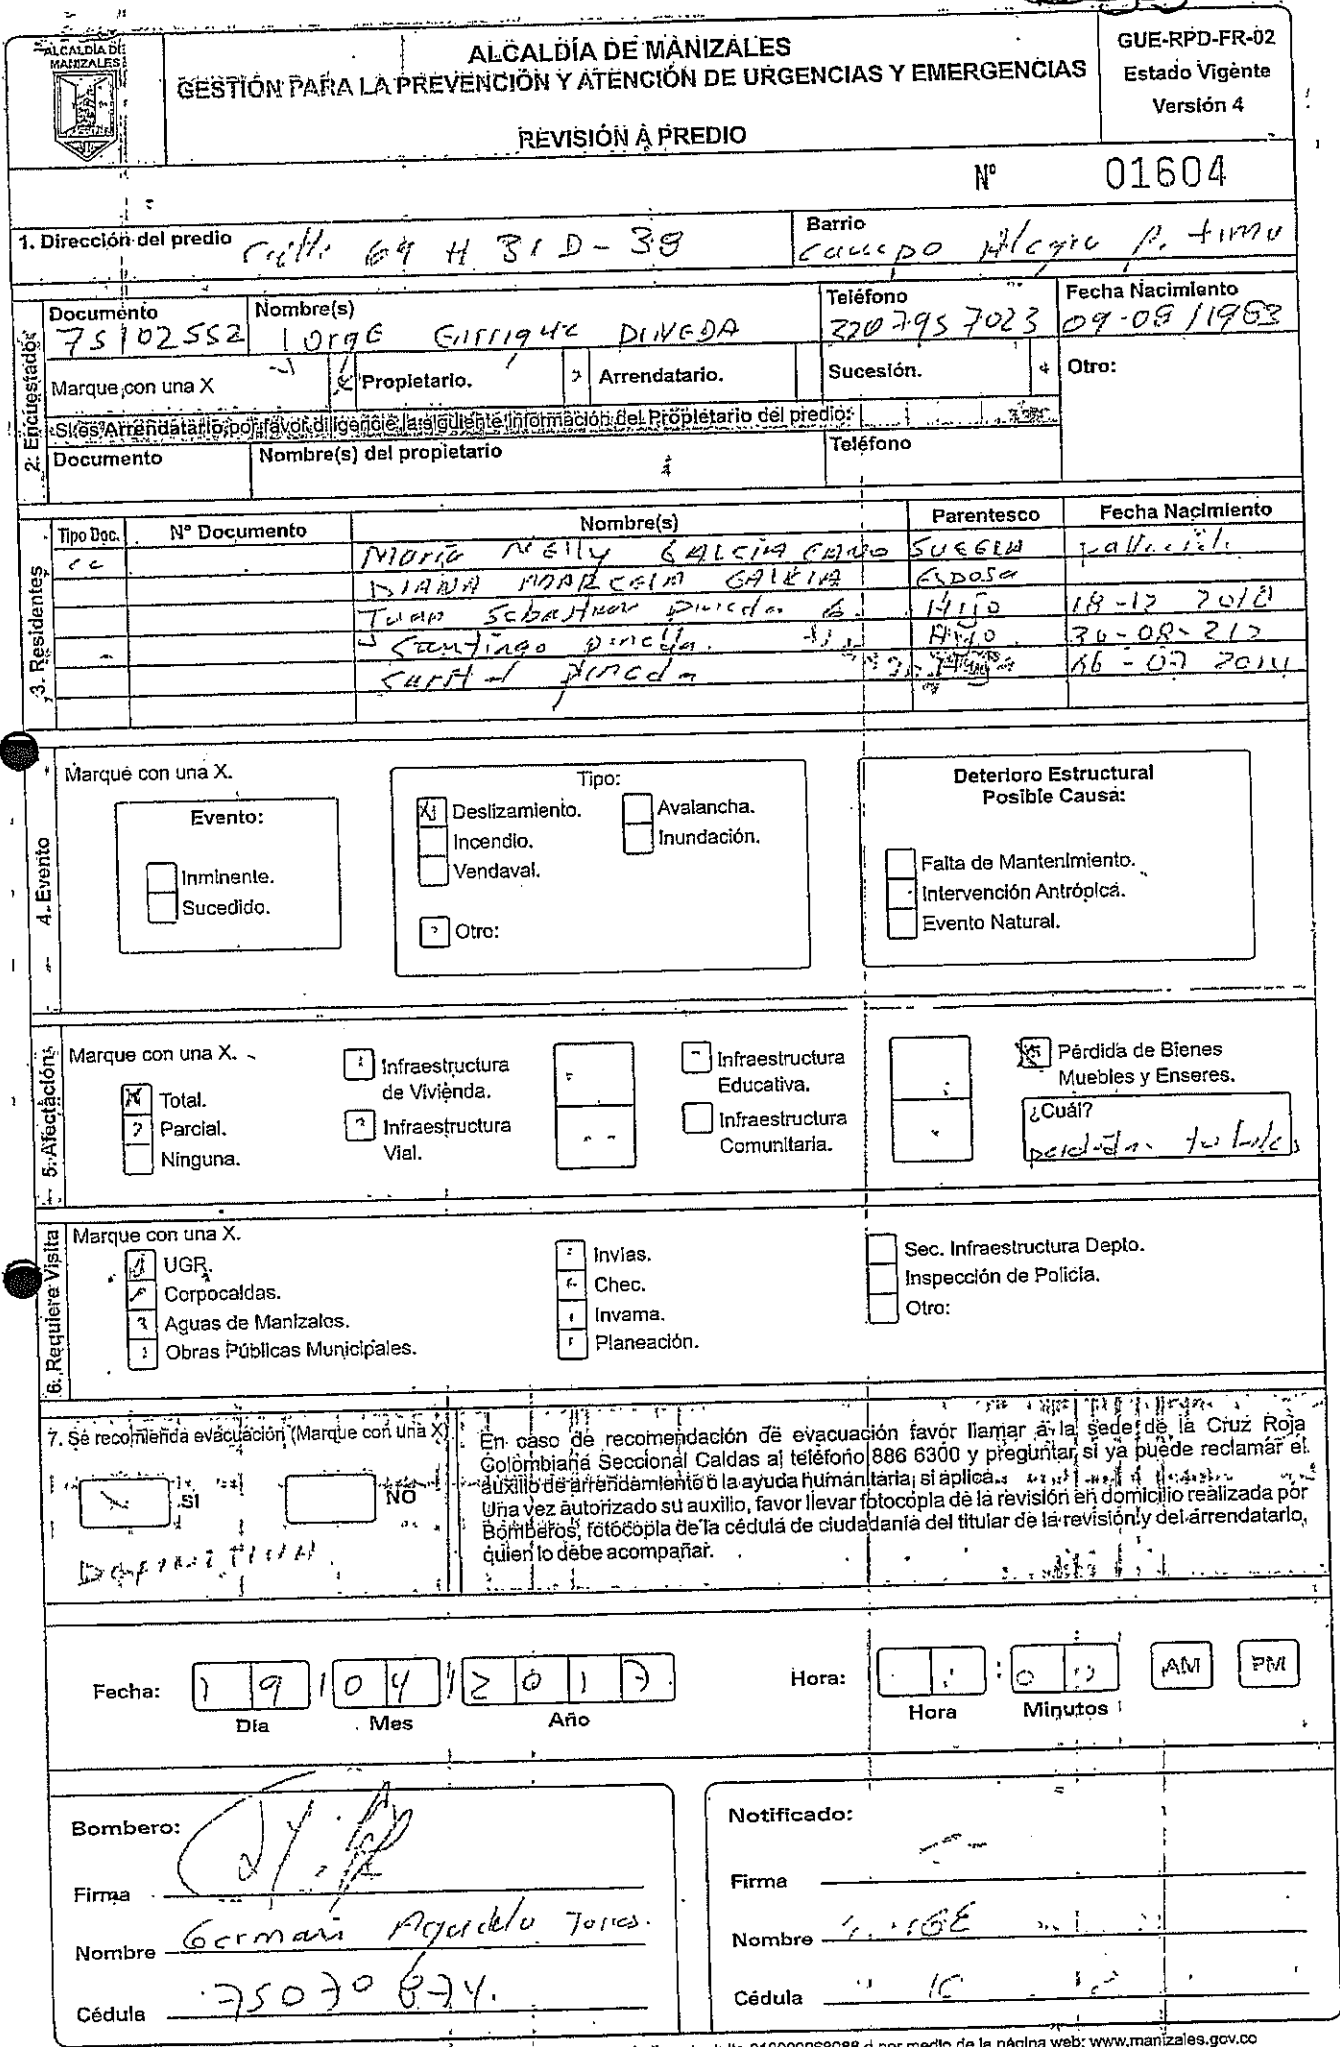 ALCALDÍA DE MANIZALES
ALCALDÍA DE MANIZALES
GESTIÓN PARA LA PREVENCIÓN Y ATENCIÓN DE URGENCIAS Y EMERGENCIAS
REVISIÓN A PREDIO
GUE-RPD-FR-02
Estado Vigente
Versión 4
Nº 01604
1. Dirección del predio 69 H 31 D-38
Barrio
2. Encuestados
Documento 75102552
Nombre(s) Jorge Enrique PINEDA
Teléfono 320 795 7023
Fecha Nacimiento 09-08/1983
Marque con una X
Propietario.
Arrendatario.
Sucesión.
Otro:
Si es Arrendatario por favor diligencie la siguiente información del Propietario del predio:
Documento
Nombre(s) del propietario
Teléfono
3. Residentes
Tipo Doc. Nº Documento Nombre(s) Parentesco Fecha Nacimiento
cc Maria Nelly GALCIA CANO SUEGRA
DIANA MARCELA GALCIA Esposa
Juan Sebastian Pineda G. Hijo 18-12
Santiago pineda. Hijo 30-08-212
pineda 2014
4. Evento
Marque con una X.
Evento:
Inminente.
Sucedido.
Tipo:
X Deslizamiento.
Incendio.
Vendaval.
Otro:
Avalancha.
Inundación.
Deterioro Estructural
Posible Causa:
Falta de Mantenimiento.
Intervención Antrópica.
Evento Natural.
5. Afectación
Marque con una X.
X Total.
Parcial.
Ninguna.
Infraestructura
de Vivienda.
Infraestructura
Vial.
Infraestructura
Educativa.
Infraestructura
Comunitaria.
X Pérdida de Bienes
Muebles y Enseres.
¿Cuál?
6. Requiere Visita
Marque con una X.
UGR.
Corpocaldas.
Aguas de Manizales.
Obras Públicas Municipales.
Invias.
Chec.
Invama.
Planeación.
Sec. Infraestructura Depto.
Inspección de Policía.
Otro:
7. Se recomienda evacuación (Marque con una X)
SI
NO
En caso de recomendación de evacuación favor llamar a la sede de la Cruz Roja
Colombiana Seccional Caldas al teléfono 886 6300 y preguntar si ya puede reclamar el
auxilio de arrendamiento o la ayuda humanitaria, si aplica.
Una vez autorizado su auxilio, favor llevar fotocopia de la revisión en domicilio realizada por
Bomberos, fotocopia de la cédula de ciudadanía del titular de la revisión y del arrendatario,
quien lo debe acompañar.
Fecha: 19 / 04 / 2017
Día Mes Año
Hora:
Hora Minutos
AM PM
Bombero:
Firma
Nombre German Agudelo Torres.
Cédula 75070674.
Notificado:
Firma
Nombre
Cédula
por medio de la página web: www.manizales.gov.co